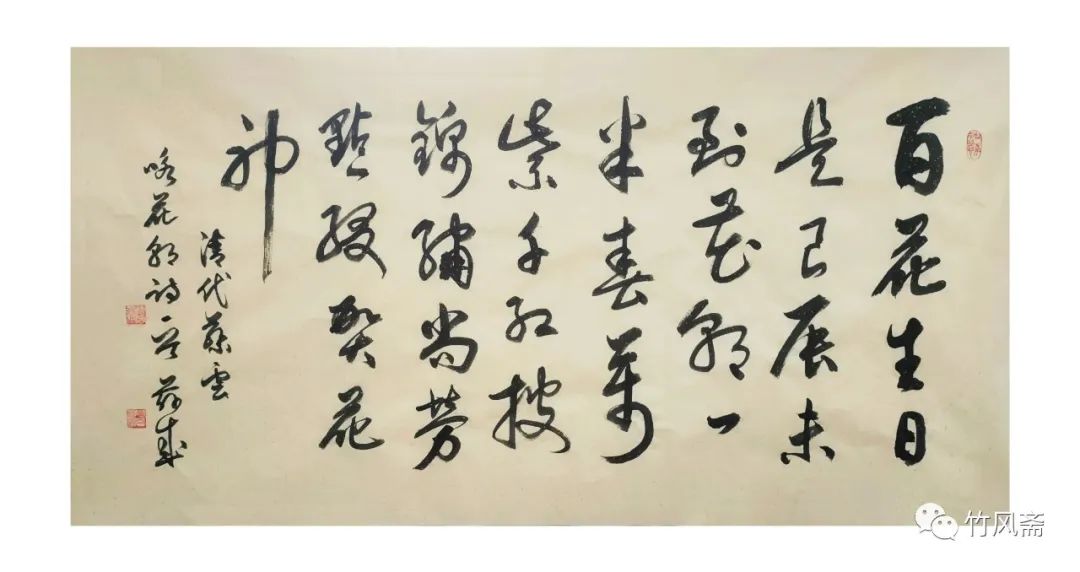 百花生日
是良辰未
到花朝一
半春萬
紫千红披
錦繡尚劳
點缀贺花
神
清代蔡雲
咏花朝诗一首
竹风斋